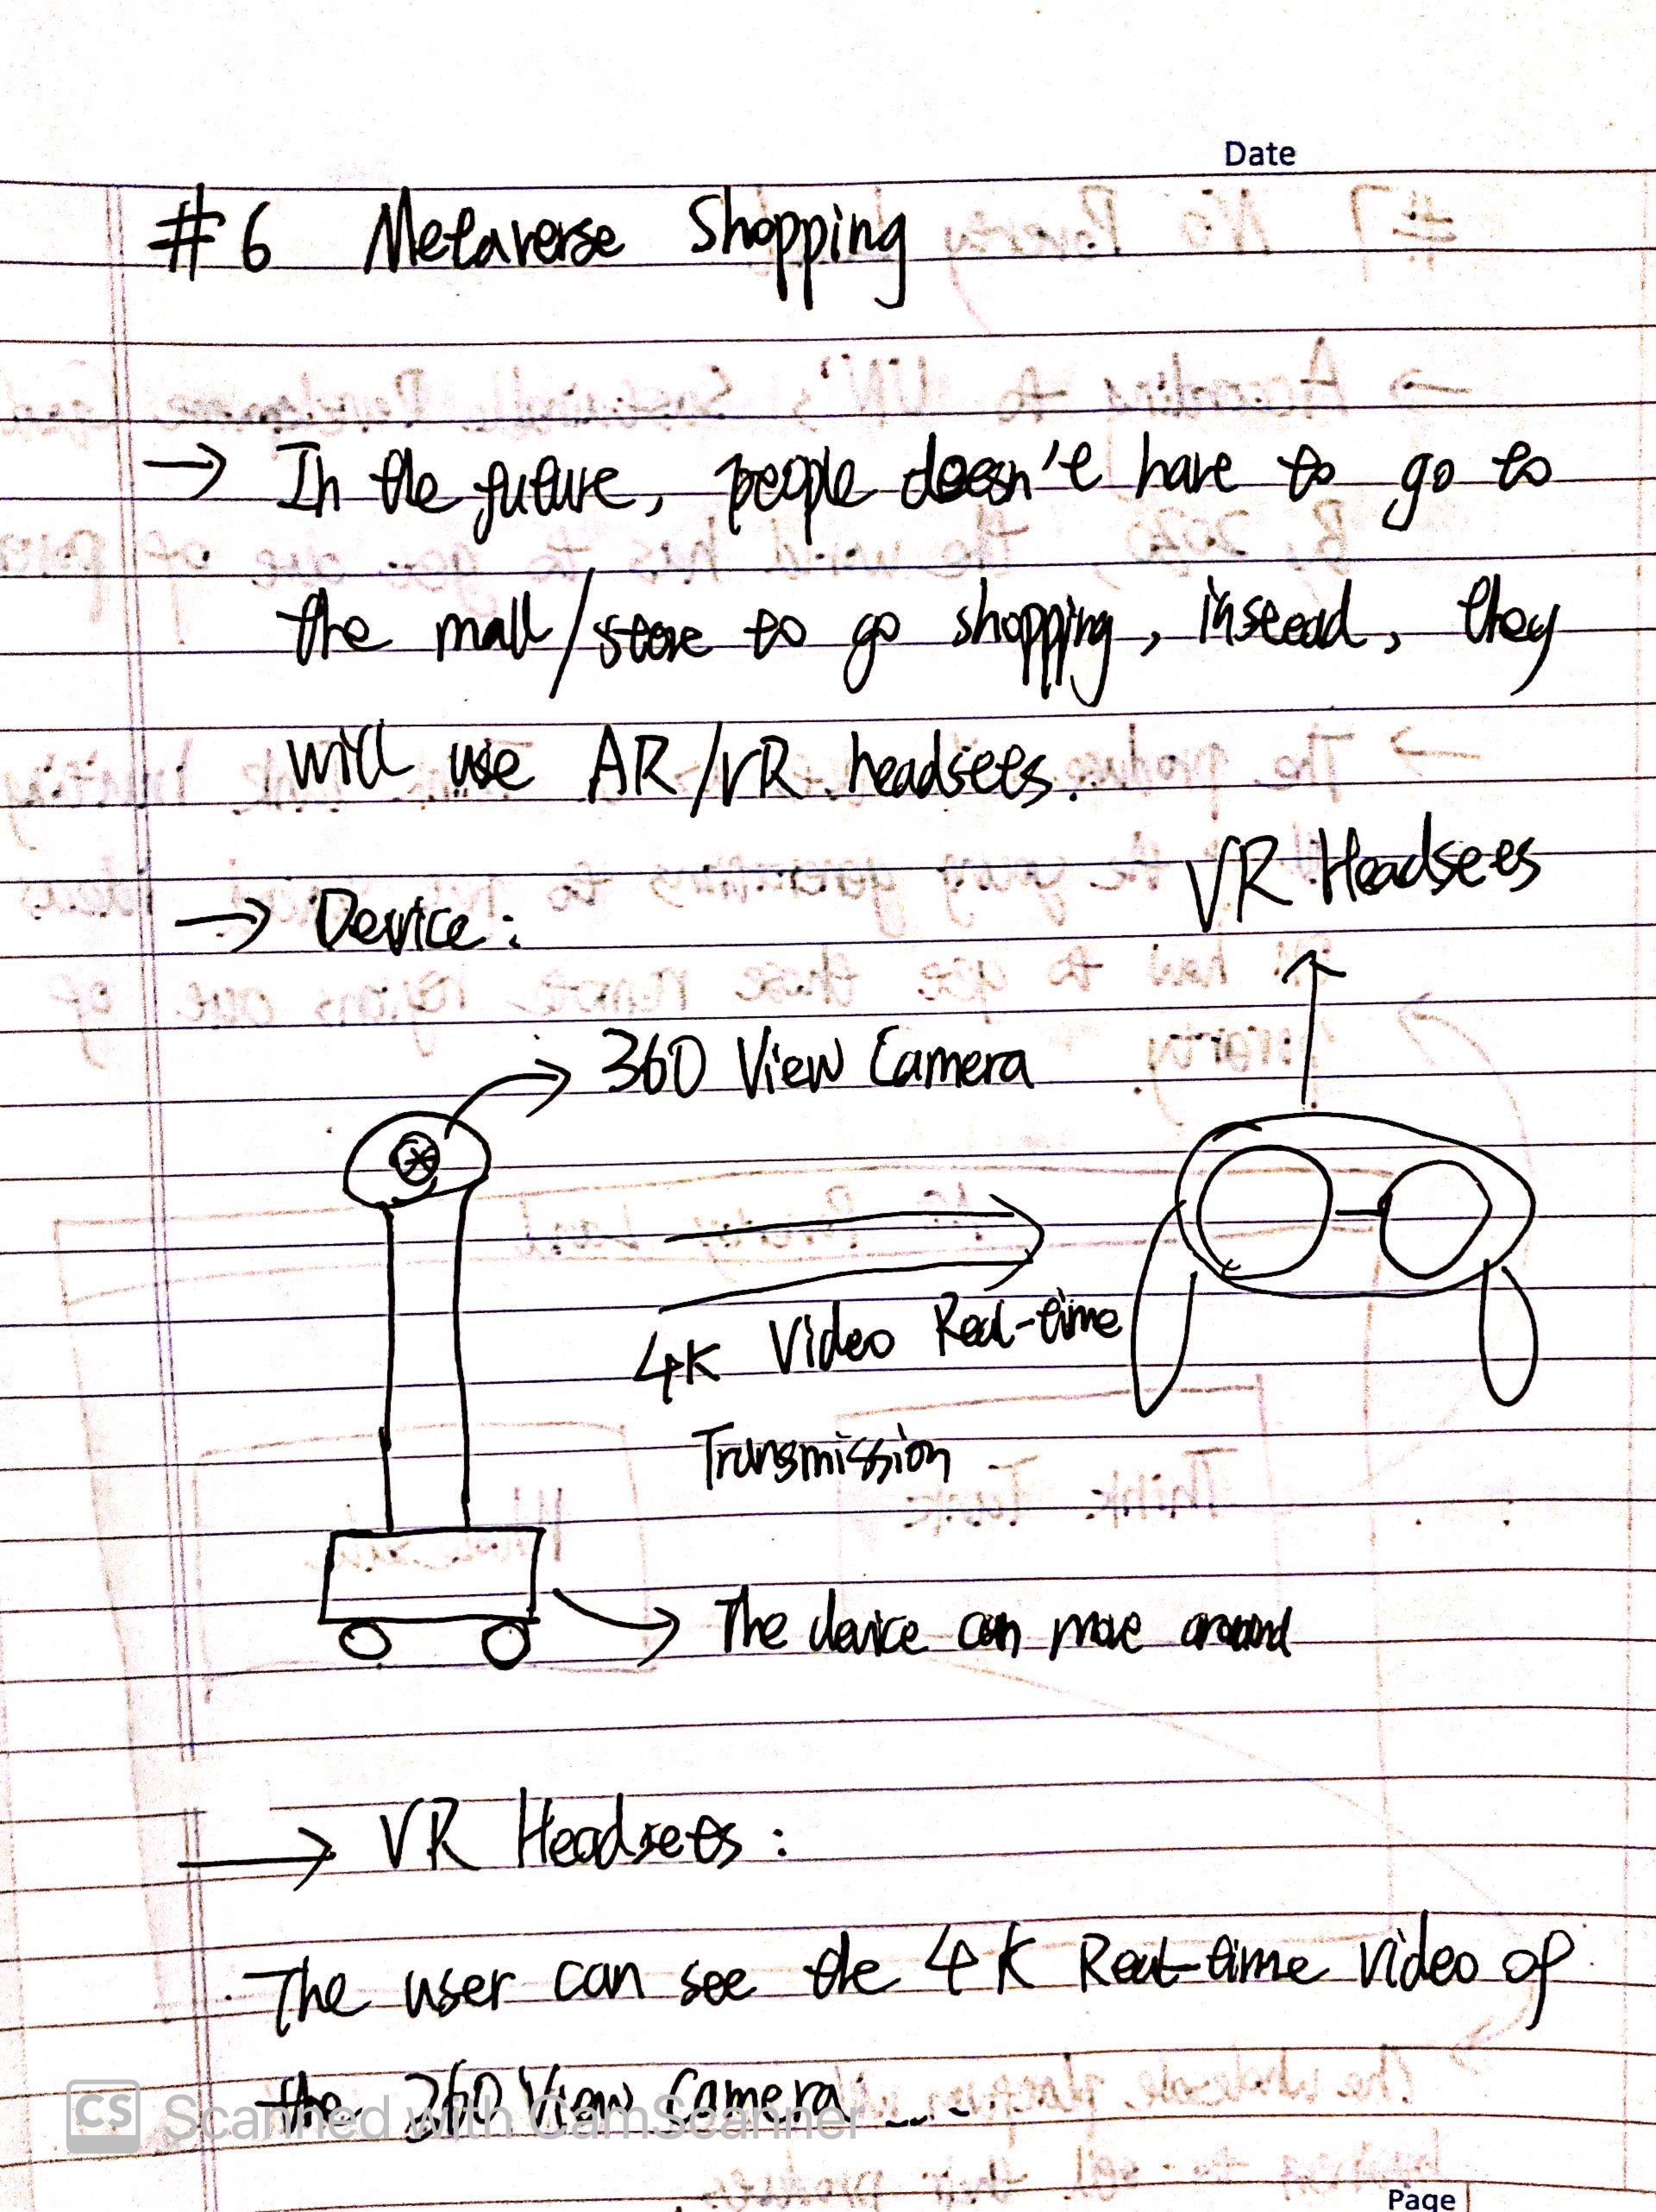 Date
#6 Metaverse Shopping
→ In the future, people doesn't have to go to
the mall/store to go shopping, instead, they
will use AR/VR headsets.
VR Headsets
→ Device:
360 View Camera
4K Video Real-time
Transmission
The device can move around
→ VR Headsets:
The user can see the 4K Real-time video of
the 360 View Camera ...
CS Scanned with CamScanner
Page